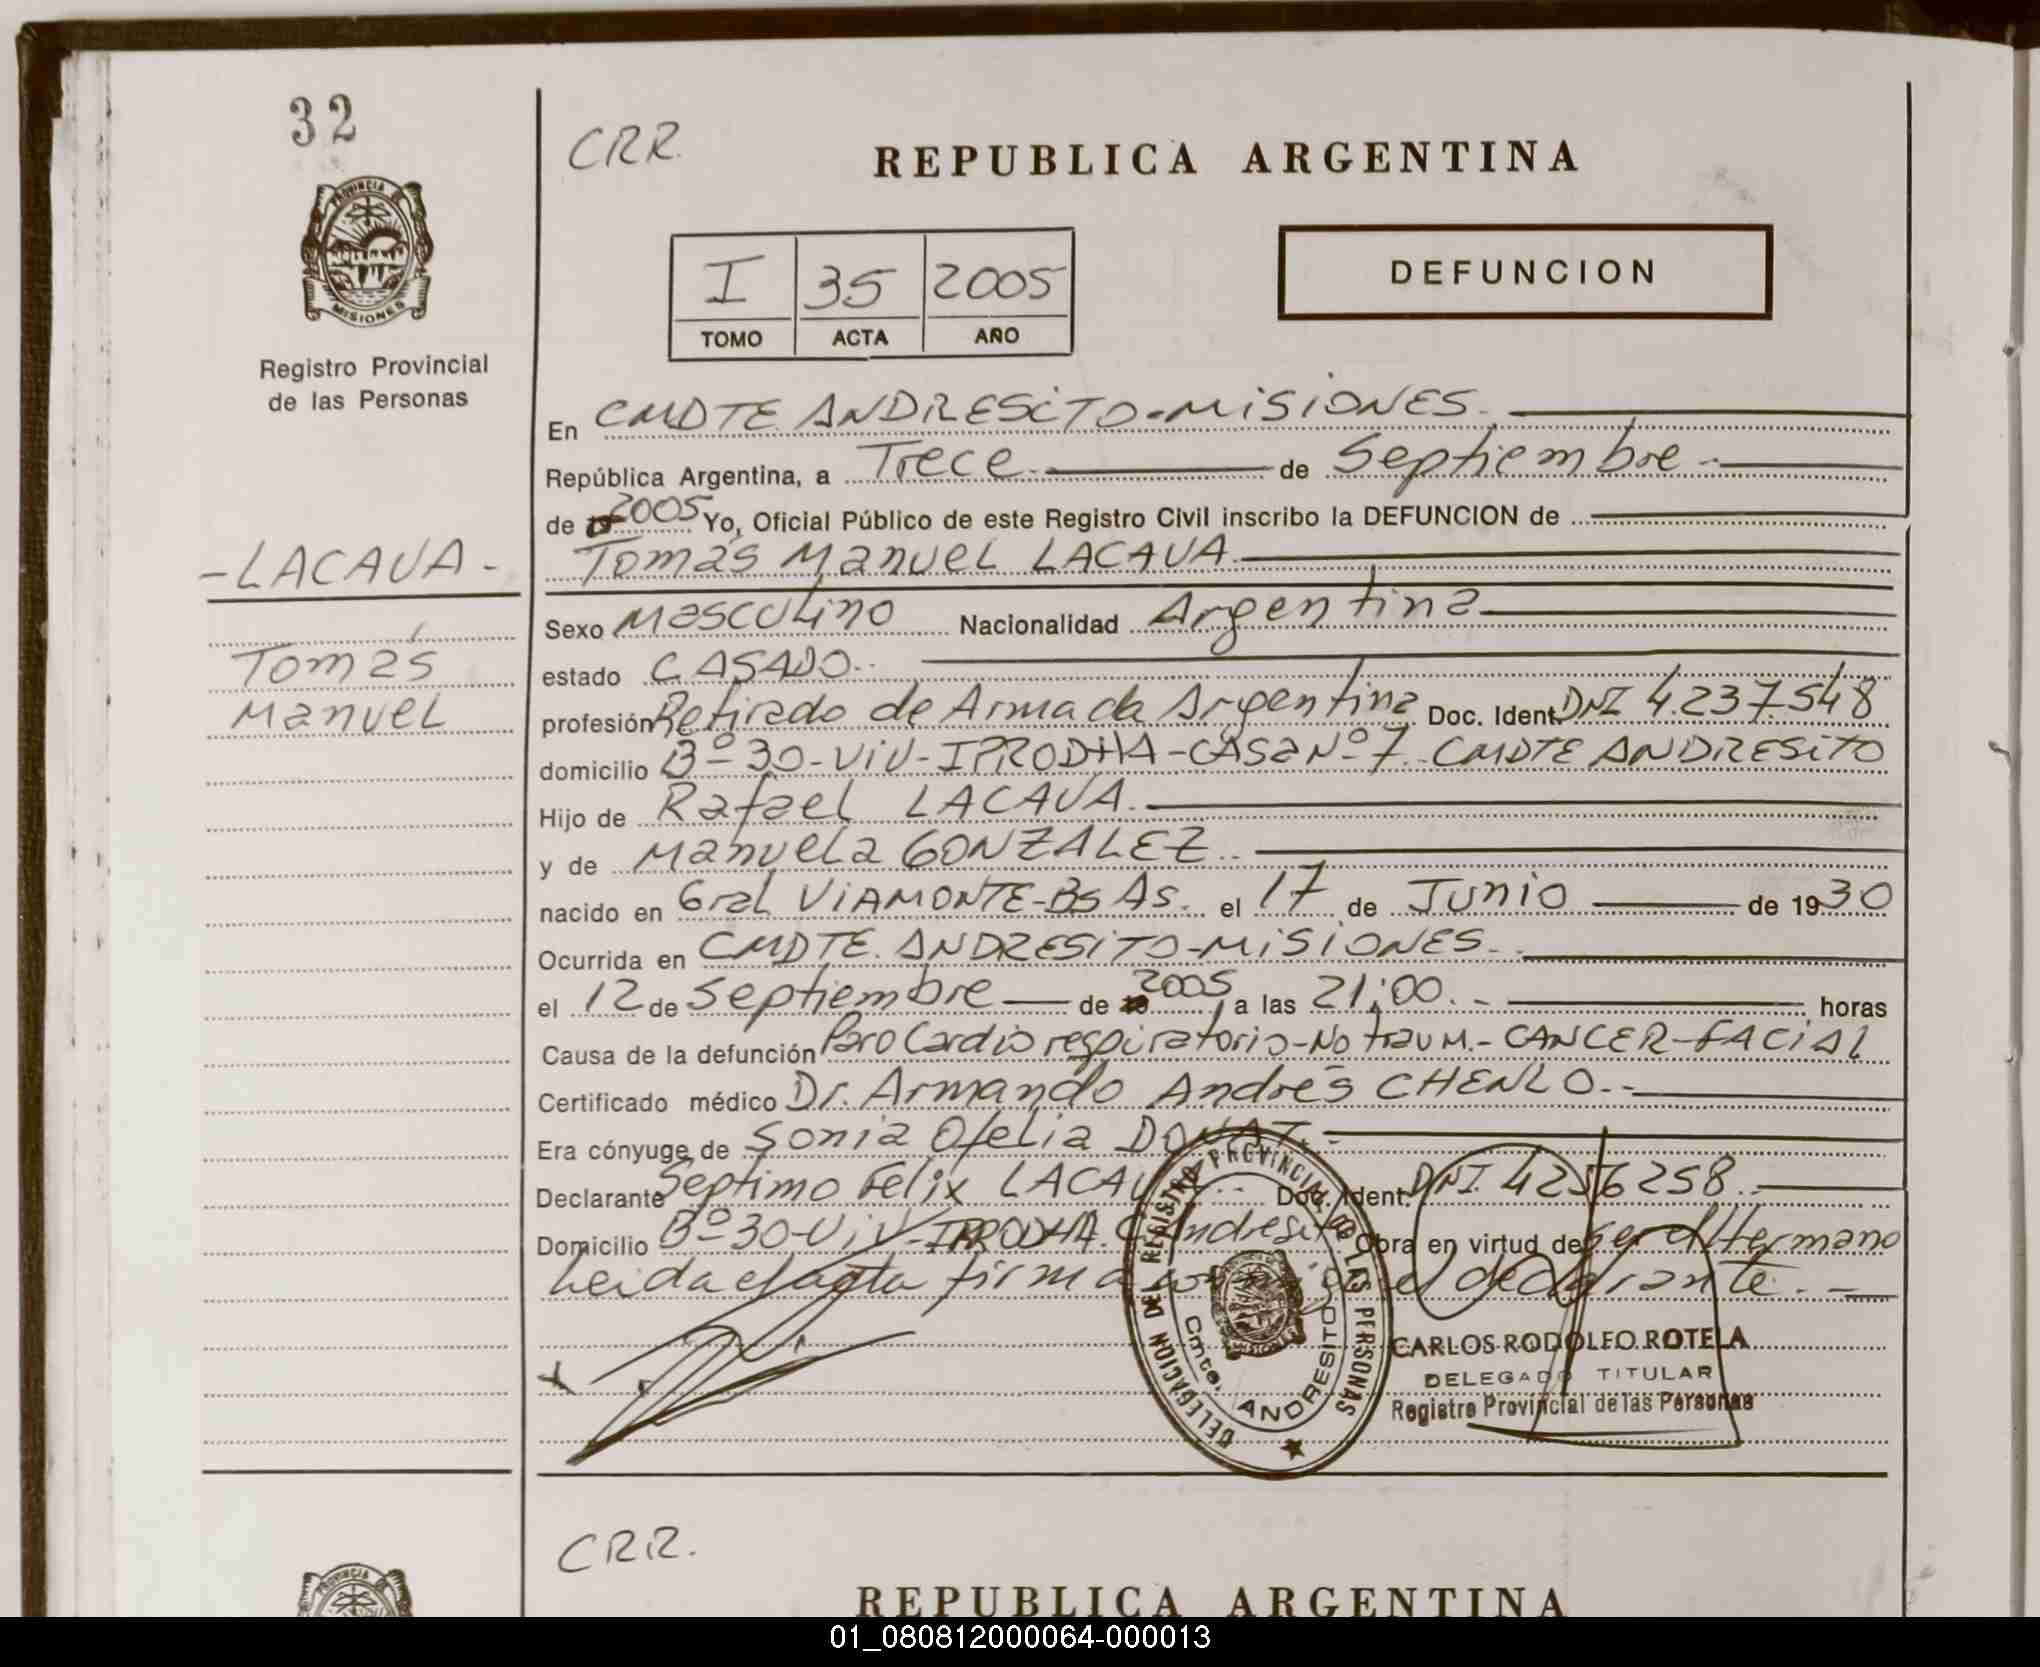 32
CRR.
REPUBLICA ARGENTINA
PROVINCIA DE
MISIONES
Registro Provincial
de las Personas
I 35 2005
TOMO ACTA AÑO
DEFUNCION
En CMDTE ANDRESITO-MISIONES.
República Argentina, a Trece de Septiembre
de 2005 Yo, Oficial Público de este Registro Civil inscribo la DEFUNCION de
Tomás Manuel LACAVA
-LACAVA-
Tomás
Manuel
Sexo Masculino Nacionalidad Argentina
estado CASADO
profesión Retirado de Armada Argentina Doc. Ident. DNI 4.237.548
domicilio Bº 30-Viv-IPRODHA-CASA Nº 7 CMDTE ANDRESITO
Hijo de Rafael LACAVA.
y de Manuela GONZALEZ
nacido en Gral VIAMONTE-Bs As. el 17 de Junio de 1930
Ocurrida en CMDTE. ANDRESITO-MISIONES
el 12 de Septiembre de 2005, a las 21:00 horas
Causa de la defunción Paro Cardio respiratorio-No traum.-CANCER-FACIAL
Certificado médico Dr. Armando Andrés CHENLO.
Era cónyuge de Sonia Ofelia DONAT.
Declarante Septimo Felix LACAVA Doc. Ident. DNI 4256258
Domicilio Bº 30-Viv-IPRODHA. C. Andresito Obra en virtud de ser el Hermano
Leida el acta firma conmigo el declarante.
DELEGACION DEL REGISTRO PROVINCIAL DE LAS PERSONAS
Cmte. ANDRESITO
CARLOS RODOLFO ROTELA
DELEGADO TITULAR
Registro Provincial de las Personas
CRR.
PROVINCIA
REPUBLICA ARGENTINA
01_080812000064-000013